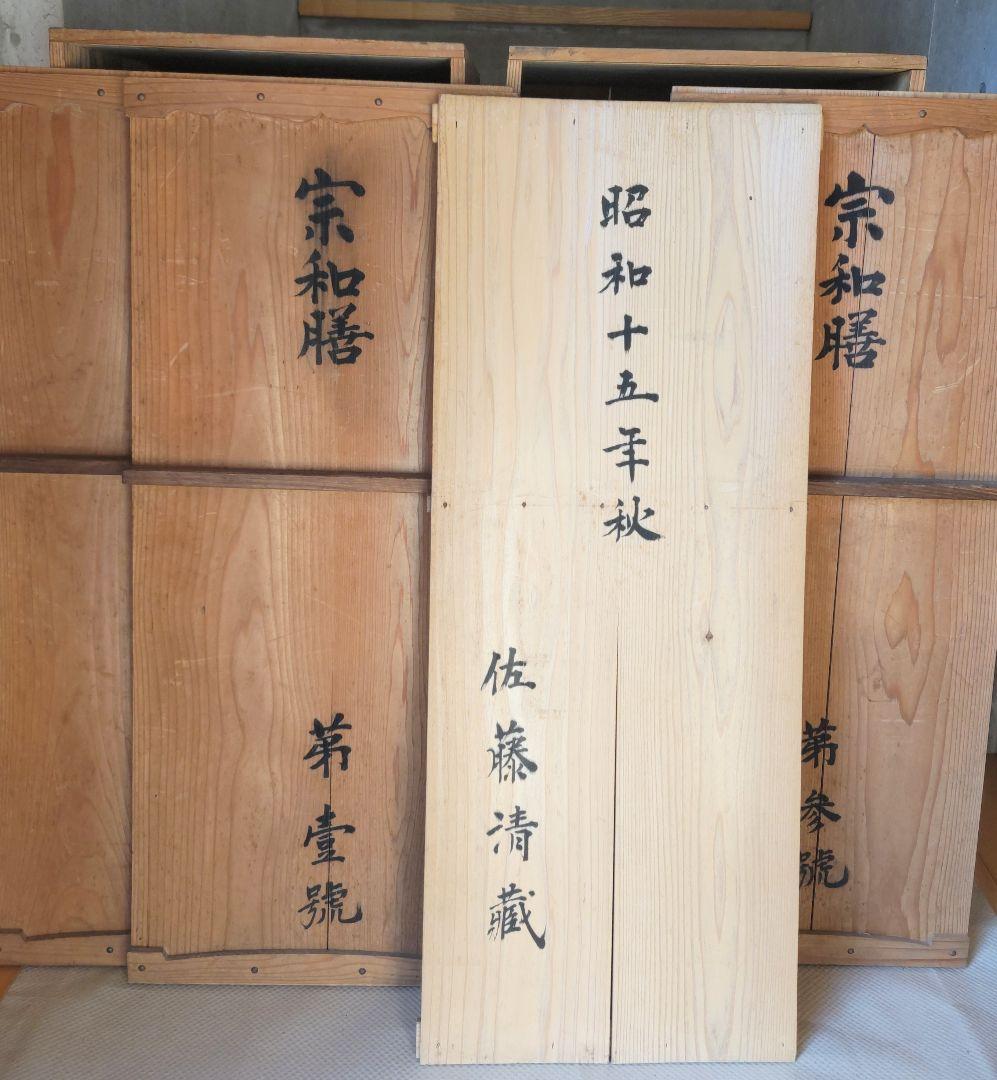 宗和膳
第参號
昭和十五年秋
佐藤清藏
宗和膳
第壹號